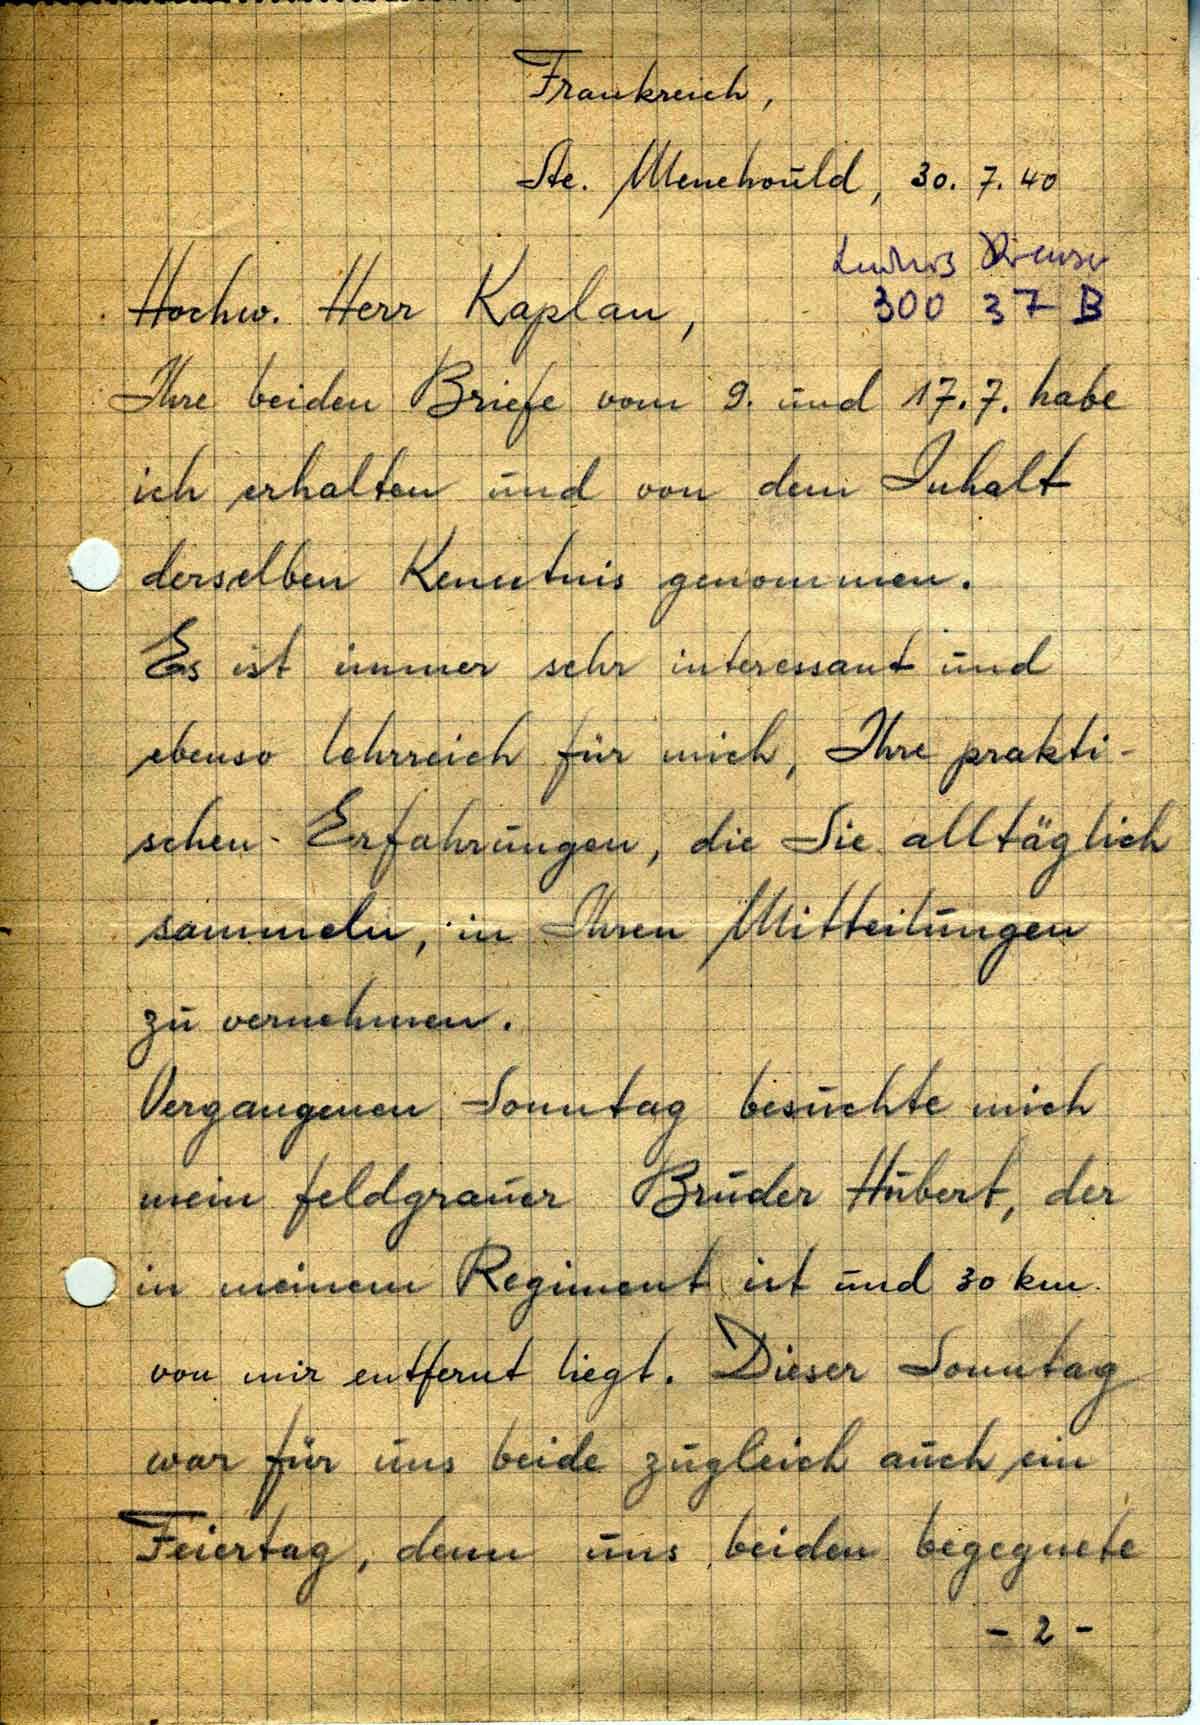 Frankreich,
Ste. Menehould, 30. 7. 40
300 37 B
Hochw. Herr Kaplan,
Ihre beiden Briefe vom 9. und 17. 7. habe
ich erhalten und von dem Inhalt
derselben Kenntnis genommen.
Es ist immer sehr interessant und
ebenso lehrreich für mich, Ihre prakti-
schen Erfahrungen, die Sie alltäglich
sammeln, in Ihren Mitteilungen
zu vernehmen.
Vergangenen Sonntag besuchte mich
mein feldgrauer Bruder Hubert, der
in meinem Regiment ist und 30 km
von mir entfernt liegt. Dieser Sonntag
war für uns beide zugleich auch ein
Feiertag, denn uns beiden begegnete
- 2 -